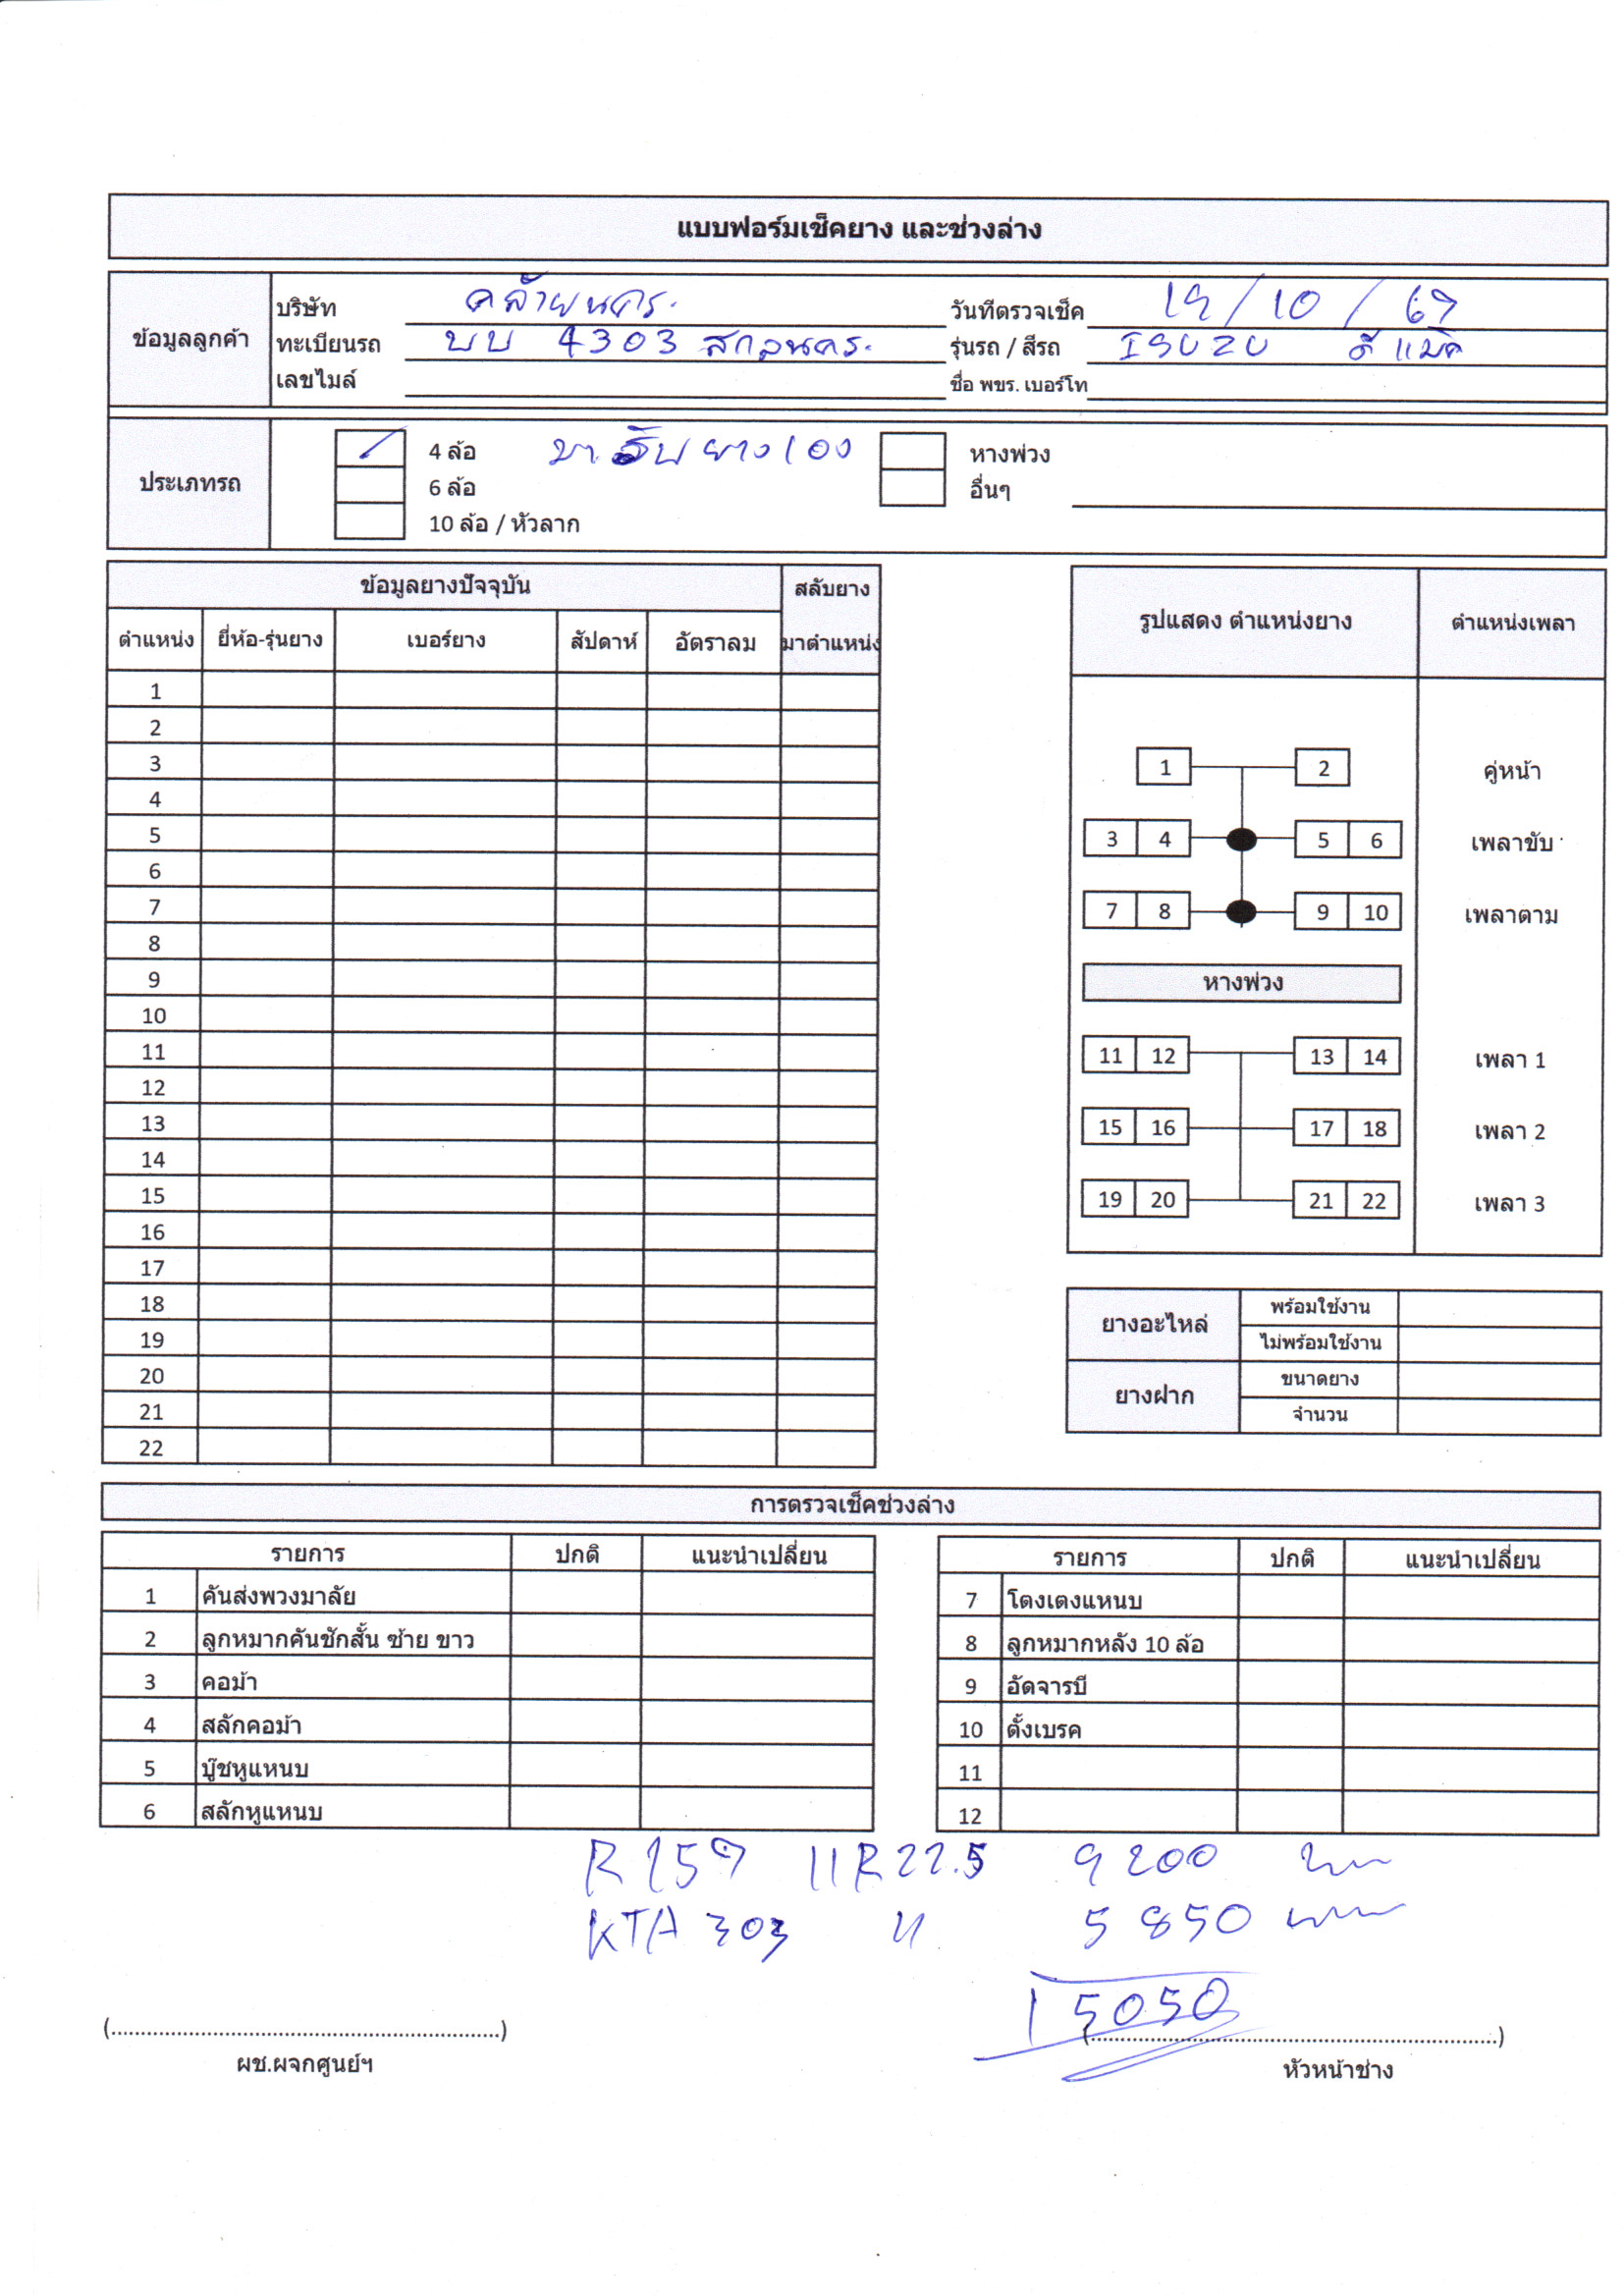 แบบฟอร์มเช็คยาง และช่วงล่าง
ข้อมูลลูกค้า
บริษัท คล้ายนคร. วันที่ตรวจเช็ค 19/10/67
ทะเบียนรถ บบ 4303 สกลนคร. รุ่นรถ / สีรถ ISUZU ดีแมค
เลขไมล์ ชื่อ พขร. เบอร์โท
ประเภทรถ
/ 4 ล้อ มารับยางเอง หางพ่วง
6 ล้อ อื่นๆ
10 ล้อ / หัวลาก
ข้อมูลยางปัจจุบัน สลับยาง
ตำแหน่ง ยี่ห้อ-รุ่นยาง เบอร์ยาง สัปดาห์ อัตราลม มาตำแหน่ง
1
2
3
4
5
6
7
8
9
10
11
12
13
14
15
16
17
18
19
20
21
22
รูปแสดง ตำแหน่งยาง ตำแหน่งเพลา
1 2 คู่หน้า
3 4 5 6 เพลาขับ
7 8 9 10 เพลาตาม
หางพ่วง
11 12 13 14 เพลา 1
15 16 17 18 เพลา 2
19 20 21 22 เพลา 3
ยางอะไหล่ พร้อมใช้งาน
ไม่พร้อมใช้งาน
ยางฝาก ขนาดยาง
จำนวน
การตรวจเช็คช่วงล่าง
รายการ ปกติ แนะนำเปลี่ยน
1 คันส่งพวงมาลัย
2 ลูกหมากคันชักสั้น ซ้าย ขาว
3 คอม้า
4 สลักคอม้า
5 บู๊ชหูแหนบ
6 สลักหูแหนบ
รายการ ปกติ แนะนำเปลี่ยน
7 โตงเตงแหนบ
8 ลูกหมากหลัง 10 ล้อ
9 อัดจารบี
10 ตั้งเบรค
11
12
R159 11R22.5 9200
KTA 303 11 5850
15050
(..........................................................)
ผช.ผจกศูนย์ฯ
(..........................................................)
หัวหน้าช่าง